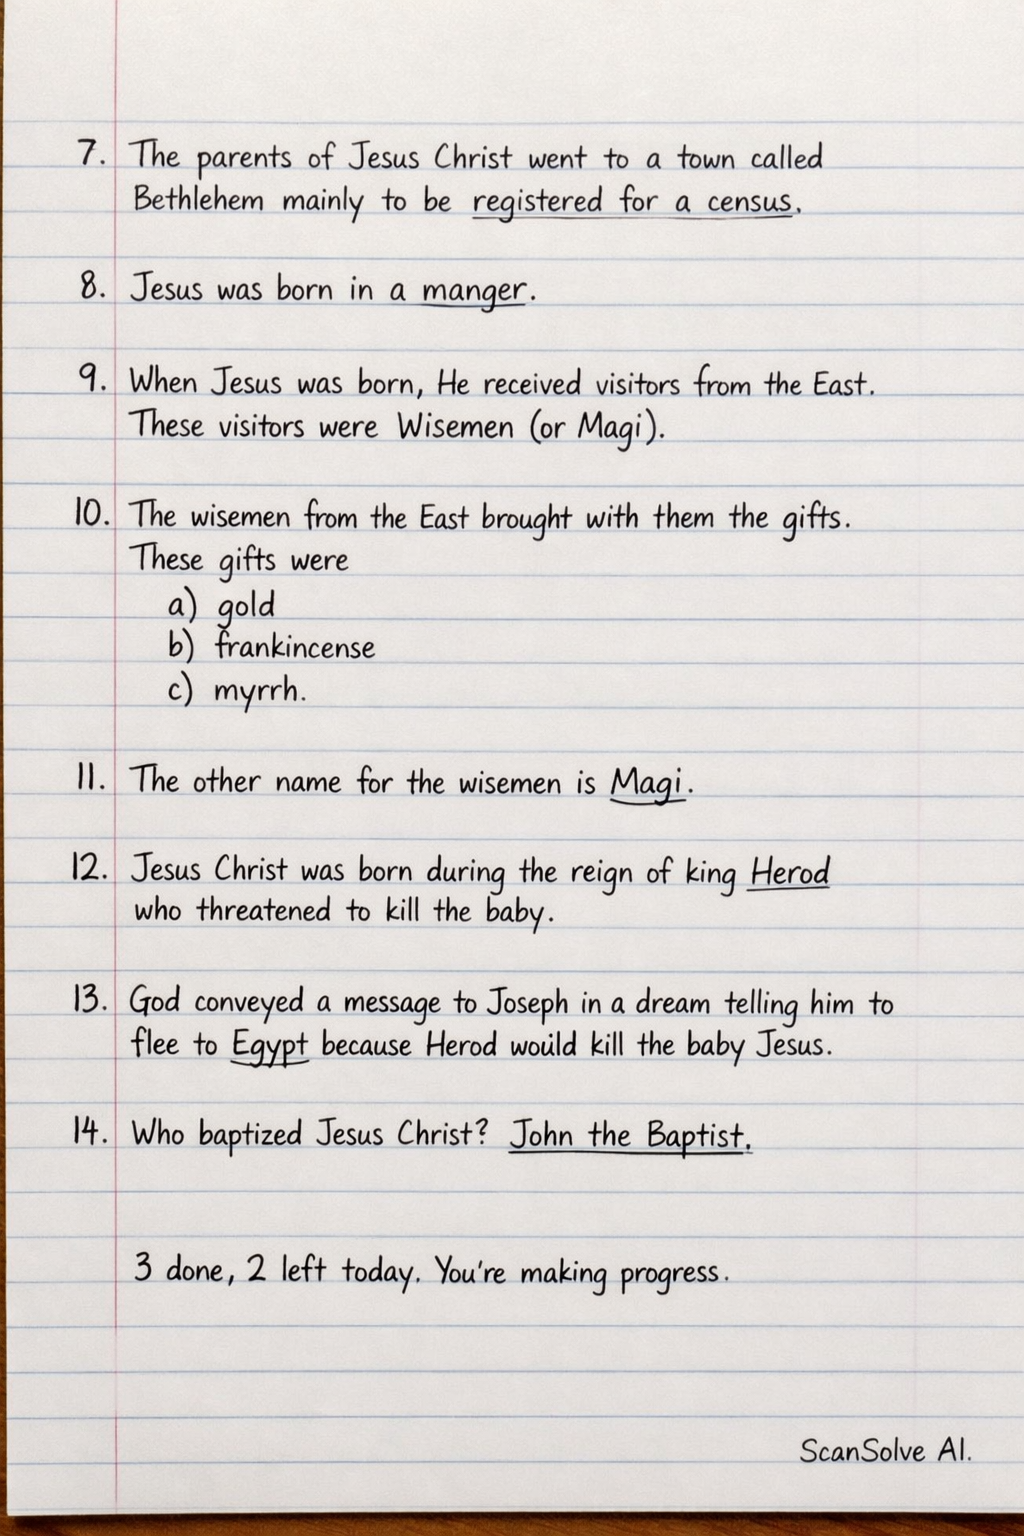 7. The parents of Jesus Christ went to a town called
Bethlehem mainly to be registered for a census.
8. Jesus was born in a manger.
9. When Jesus was born, He received visitors from the East.
These visitors were Wisemen (or Magi).
10. The wisemen from the East brought with them the gifts.
These gifts were
a) gold
b) frankincense
c) myrrh.
11. The other name for the wisemen is Magi.
12. Jesus Christ was born during the reign of king Herod
who threatened to kill the baby.
13. God conveyed a message to Joseph in a dream telling him to
flee to Egypt because Herod would kill the baby Jesus.
14. Who baptized Jesus Christ? John the Baptist.
3 done, 2 left today. You're making progress.
ScanSolve AI.